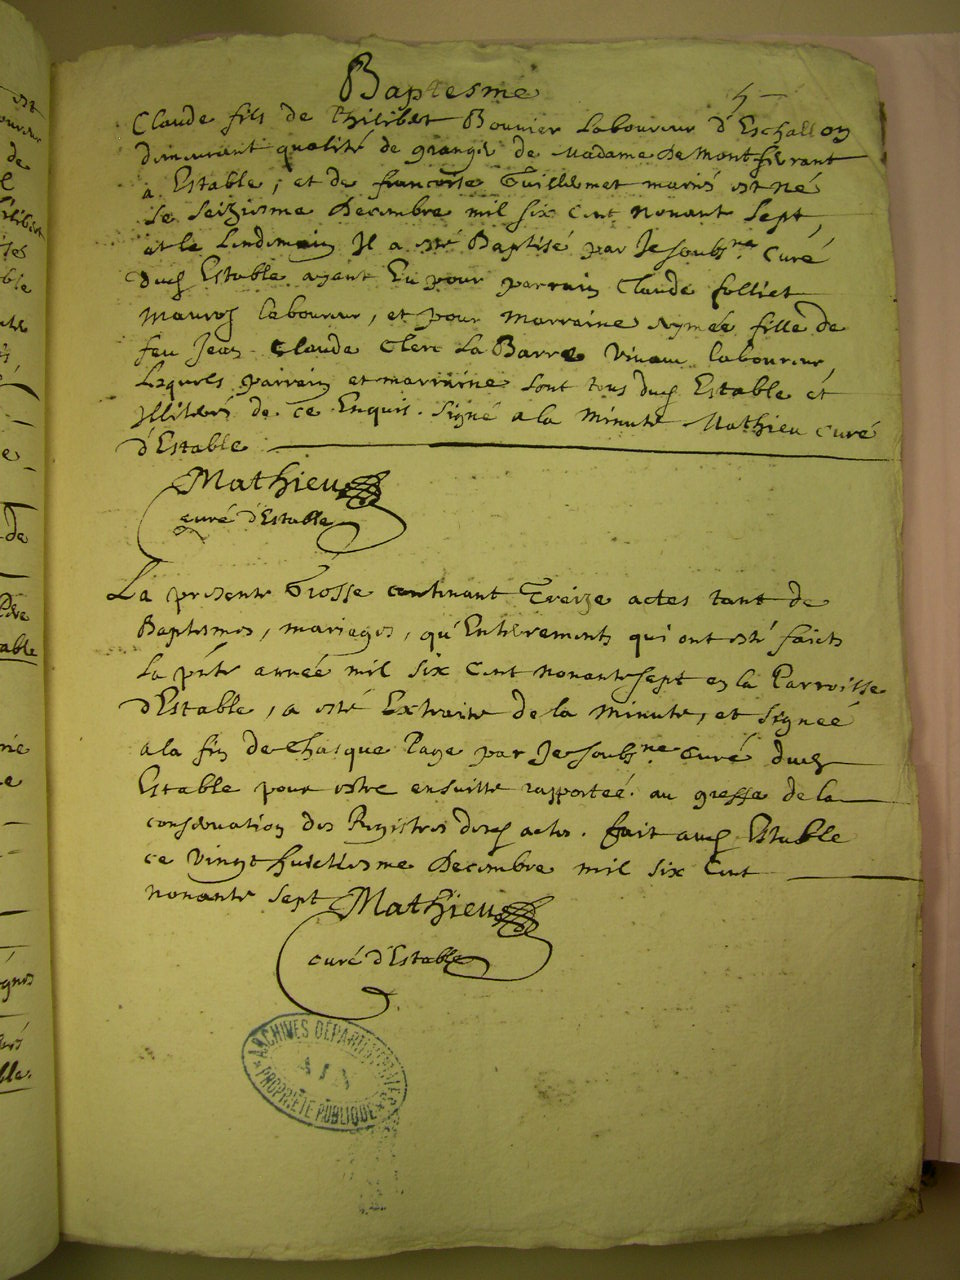 Baptesme
5
Claude fils de Philibert Bouvier Laboureur d'Eschallon
demeurant qualité de granger de Madame de Montferrant
a Estable, et de francoise Guillermet mariés est né
le seiziesme decembre mil six cent nonant sept,
et le lendemain Il a esté Baptisé par Je soubsne curé
dud Estable ayant Eu pour parrain Claude folliet
laboureur, et pour marraine Aymée fille de
feu Jean Claude Clerc La Barre vivant laboureur,
Lesquels parrain et marraine sont tous dud Estable et
Illiterés de ce Enquis. signé a la minute Mathieu curé
d'Estable
Mathieu
curé d'Estable
La presente Grosse contenant Treize actes tant de
Baptesmes, mariages, qu'Enterrements qui ont esté faicts
la pnte année mil six cent nonante sept en la Parroisse
d'Estable, a esté Extraite de la minute, et signée
a la fin de Chasque Page par Je soubsne curé dud
Estable pour estre ensuitte rapportée au greffe de la
conservation des Registres desd actes. fait aud Estable
ce vingt huictiesme decembre mil six cent
nonante sept Mathieu
curé d'Estable
ARCHIVES DÉPARTEMENTALES
AIN
PROPRIÉTÉ PUBLIQUE